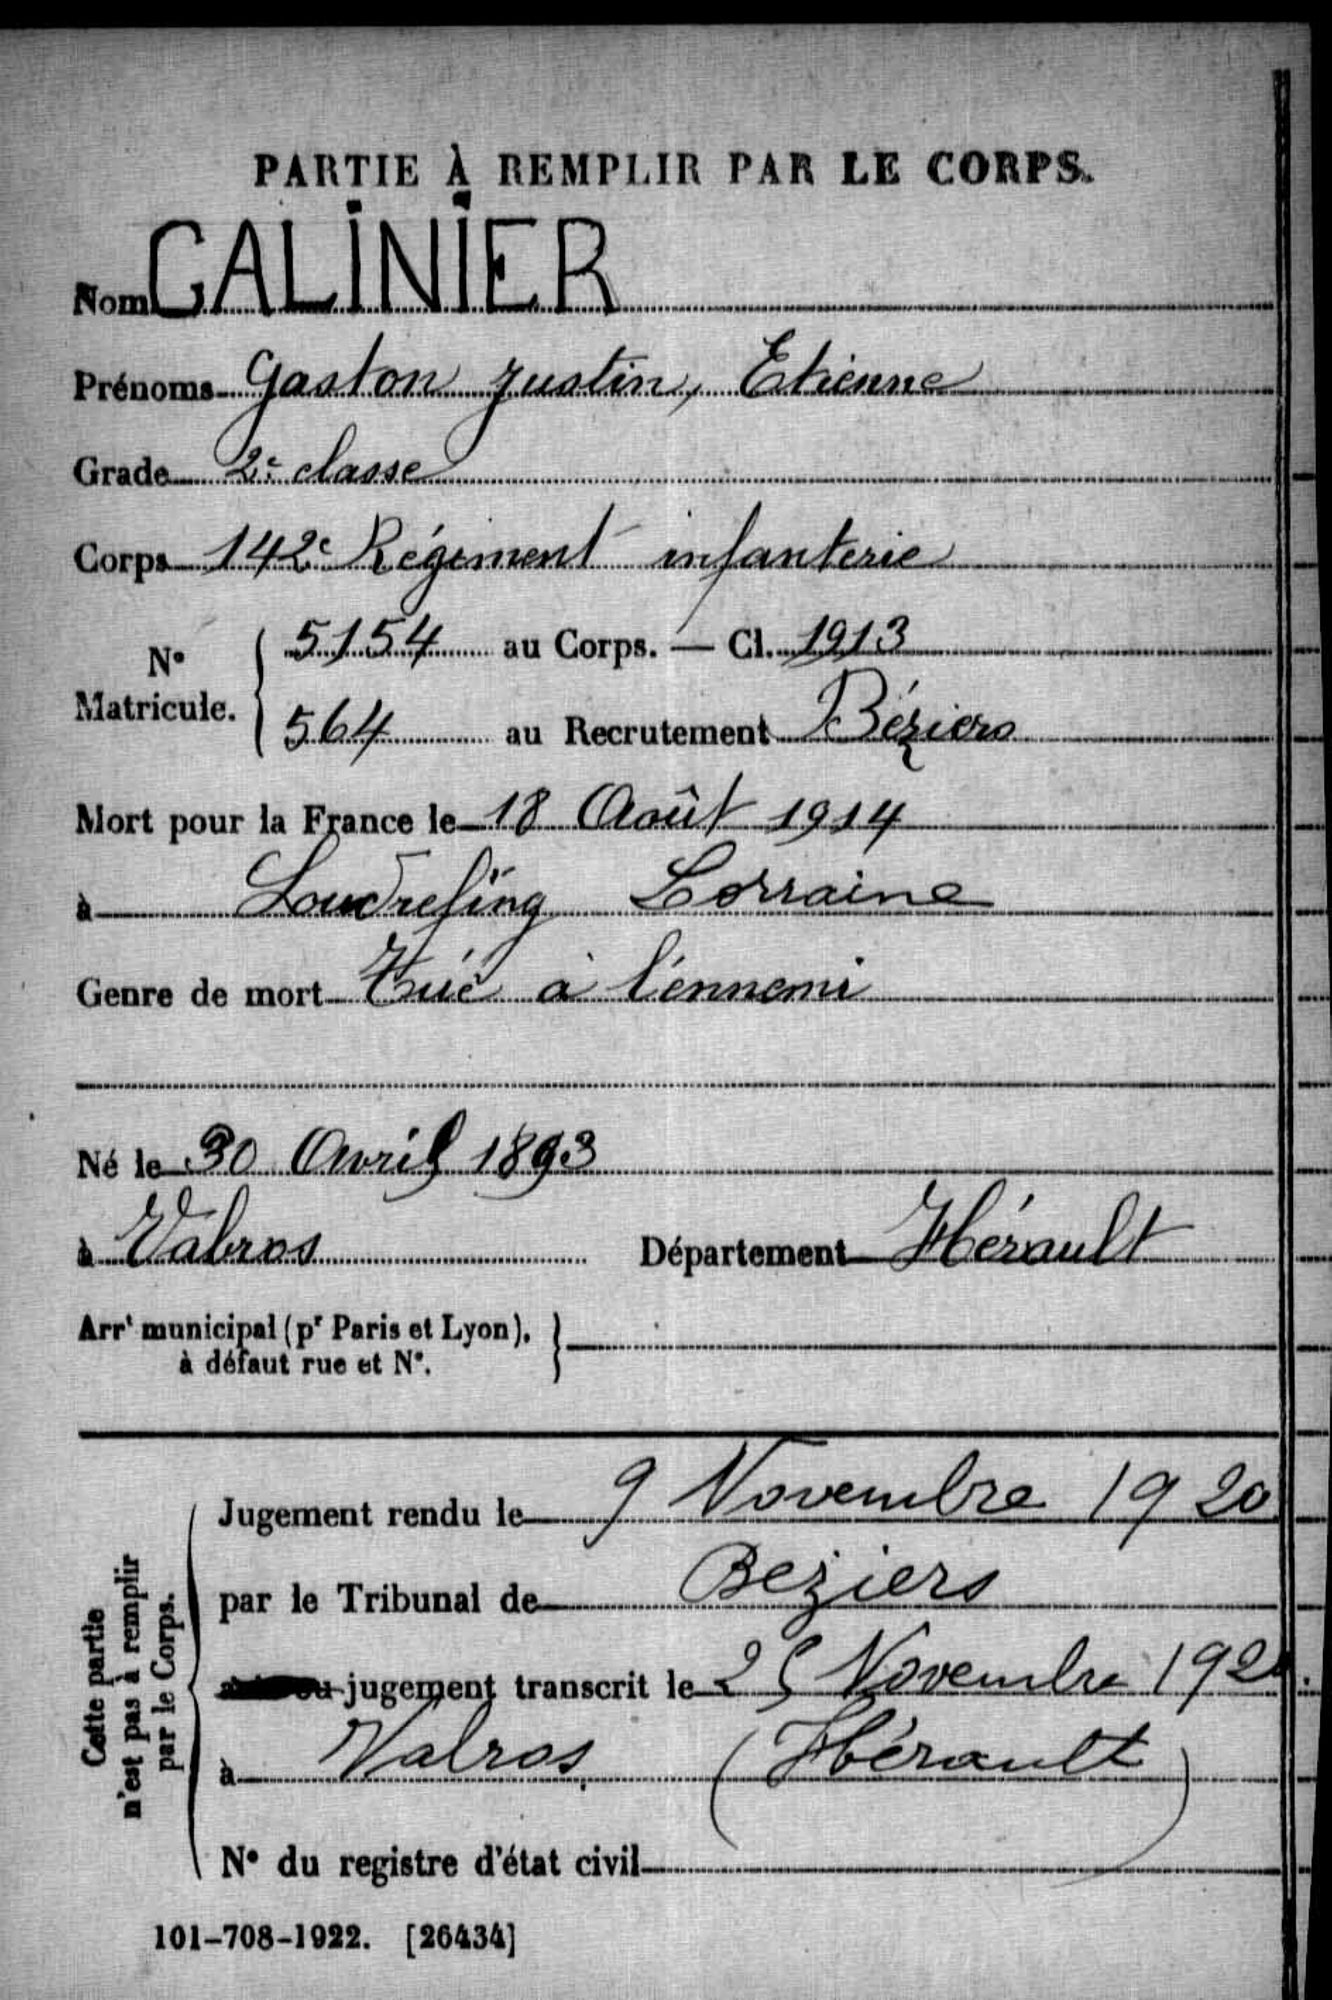 PARTIE À REMPLIR PAR LE CORPS.
Nom GALINIER
Prénoms Gaston Justin, Etienne
Grade 2e classe
Corps 142e Régiment infanterie
N° Matricule. 5154 au Corps. — Cl. 1913
564 au Recrutement Béziers
Mort pour la France le 18 Août 1914
à Loudrefing Lorraine
Genre de mort Tué à l'ennemi
Né le 30 Avril 1893
à Valros Département Hérault
Arrt municipal (pr Paris et Lyon),
à défaut rue et N°.
Cette partie
n'est pas à remplir
par le Corps.
Jugement rendu le 9 Novembre 1920
par le Tribunal de Beziers
ou jugement transcrit le 25 Novembre 192
à Valros (Hérault)
N° du registre d'état civil
101-708-1922. [26434]